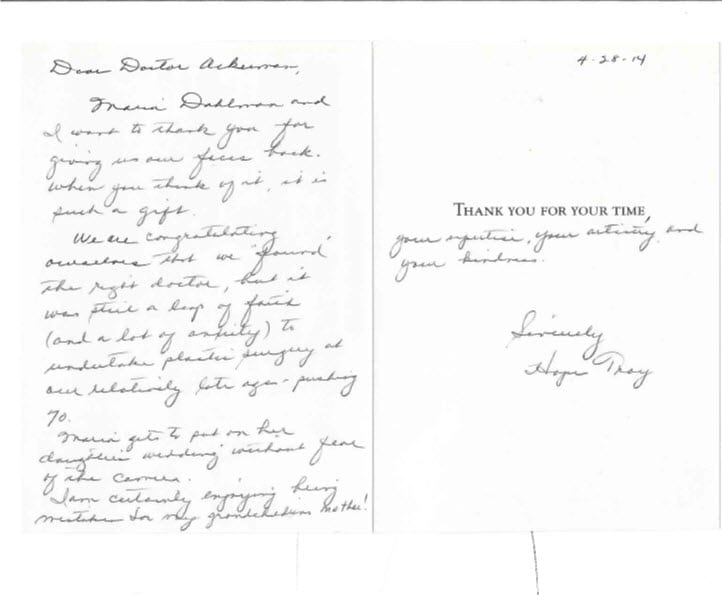 Dear Doctor Ackerman,
Maria Dahlman and
I want to thank you for
giving us our faces back.
When you think of it, it is
such a gift.
We are congratulating
ourselves that we "found"
the right doctor, but it
was still a leap of faith
(and a lot of anxiety) to
undertake plastic surgery at
our relatively late ages - pushing
70.
Maria gets to put on her
daughter's wedding without fear
of the camera.
I am certainly enjoying being
mistaken for my grandchildren's mother!
4-28-14
THANK YOU FOR YOUR TIME,
your expertise, your artistry and
your kindness.
Sincerely
Hope Troy